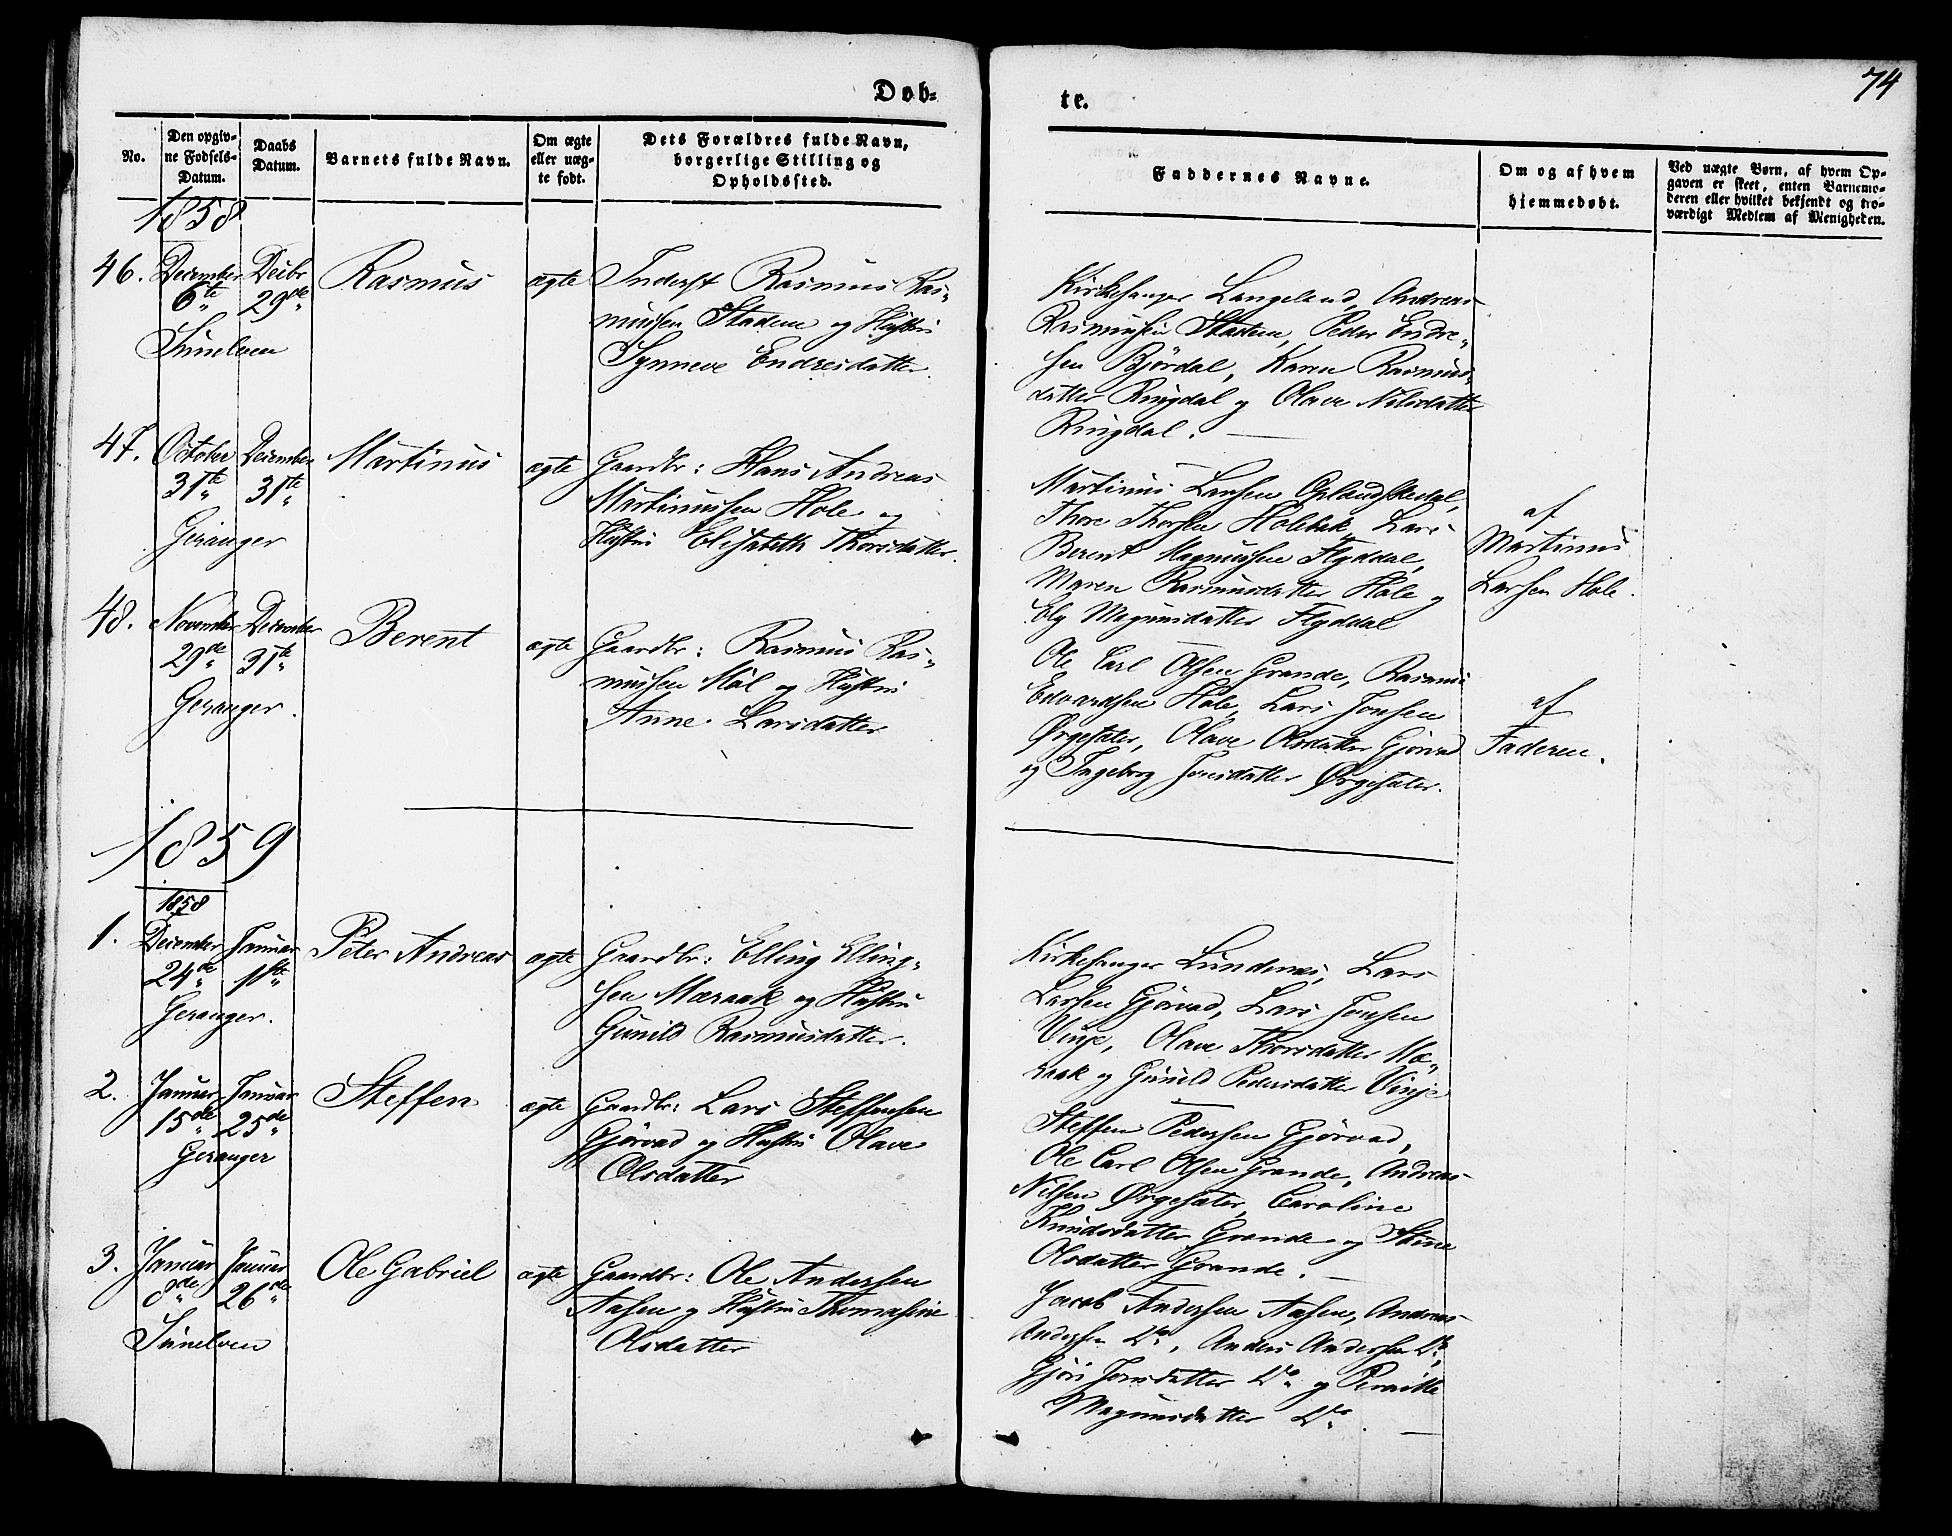 Dob-
te.
74
No.
Den opgiv-
ne Fodsels-
Datum.
Daabs
Datum.
Barnets fulde Navn.
Om ægte
eller uæg-
te fodt.
Dets Forældres fulde Navn,
borgerlige Stilling og
Opholdssted.
Faddernes Navne.
Om og af hvem
hjemmedøbt.
Ved uægte Børn, af hvem Op-
gaven er skeet, enten Barnemo-
deren eller hvilket bekjendt og tro-
værdigt Medlem af Menigheden.
1858
46.
December
6te
Sunelven
Decbr
29de
Rasmus
ægte
Inderst Rasmus Ras-
mussen Stadem og Hustru
Synneve Endresdatter.
Kirkesanger Langelund, Andreas
Rasmussen Stadem, Peder Endre-
sen Bjørdal, Karen Rasmus-
datter Ringdal og Olave Nilsdatter
Ringdal.
47.
October
31te
Geranger
December
31te
Martinus
ægte
Gaardbr: Hans Andreas
Martinussen Hole og
Hustru Elisabeth Thorsdatter.
Martinus Larsen Oplandskedal,
Thore Thorsen Holebak, Lars
Berent Magnussen Flyddal,
Maren Rasmusdatter Hole og
Ely Magnusdatter Flyddal
af
Martinus
Larsen Hole.
48.
November
29de
Geranger.
December
31te
Berent
ægte
Gaardbr: Rasmus Ras-
mussen Møl og Hustru
Anne Larsdatter
Ole Carl Olsen Grande, Rasmus
Edvardsen Hole, Lars Jonsen
Ørgesæter, Olave Olsdatter Gjørvad
og Ingeborg Jonsdatter Ørgesæter.
af
Faderen.
1859
1858
1.
December
24de
Geranger.
Januar
1ste
Peter Andreas
ægte
Gaardbr: Elling Elling-
sen Mæraak og Hustru
Gunild Rasmusdatter.
Kirkesanger Lundenæs, Lars
Larsen Gjørvad, Lars Jonsen
Vinje, Olave Thorsdatter Mæ-
raak og Gunild Pedersdatter Vinje
2.
Januar
15de
Geranger
Januar
25de
Steffen
ægte
Gaardbr: Lars Steffensen
Gjørvad og Hustru Olave
Olsdatter
Steffen Pedersen Gjørvad,
Ole Carl Olsen Grande, Andreas
Nilsen Ørgesæter, Caroline
Knudsdatter Grande og Stine
Olsdatter Grande.
3.
Januar
8de
Sunelven
Januar
26de
Ole Gabriel
ægte
Gaardbr: Ole Andersen
Aasen og Hustru Thomasine
Olsdatter
Jacob Andersen Aasen, Andreas
Andersen Do, Anders Andersen Do,
Gjøri Jonsdatter Do og Pernille
Magnusdatter Do.